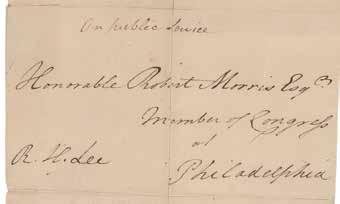 On public Service
Honorable Robert Morris Esqr
Member of Congress
at
R. H. Lee
Philadelphia